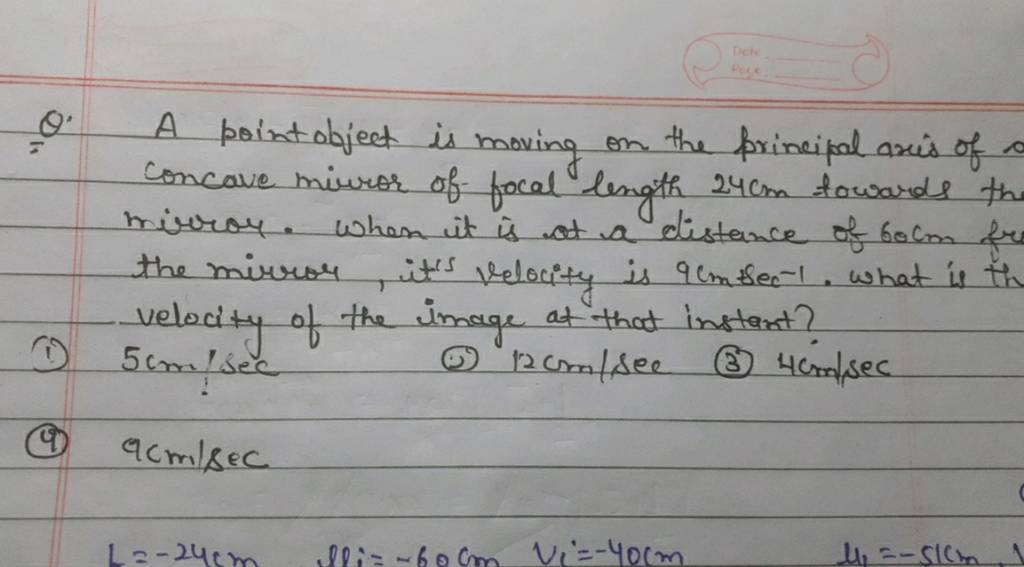 Date
Page
Q. A point object is moving on the principal axis of a
concave mirror of focal length 24cm towards the
mirror. When it is at a distance of 60cm
the mirror, it's velocity is 9cm sec-1. what is
velocity of the image at that instant?
① 5cm/sec ② 12cm/sec ③ 4cm/sec
④ 9cm/sec
= -24cm = -60cm Vi = -40cm = -51cm